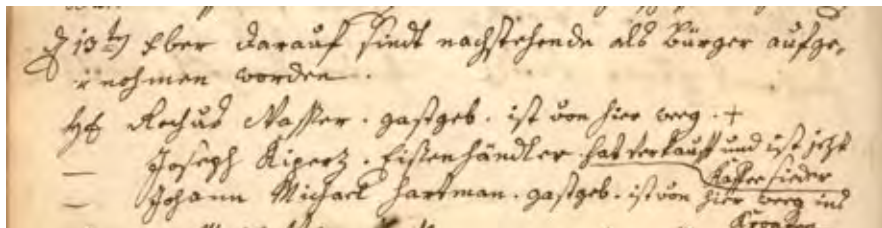 13ten Eber darauf sindt nachstehende als Bürger aufge,
nohmen worden.
H Rochus Nasser. gastgeb. ist von hier weg. +
— Joseph Kipertz. Eisenhändler hat verkauft und ist jetzt
Kaffee sieder
— Johann Michael Hartman. gastgeb. ist von hier weg ins